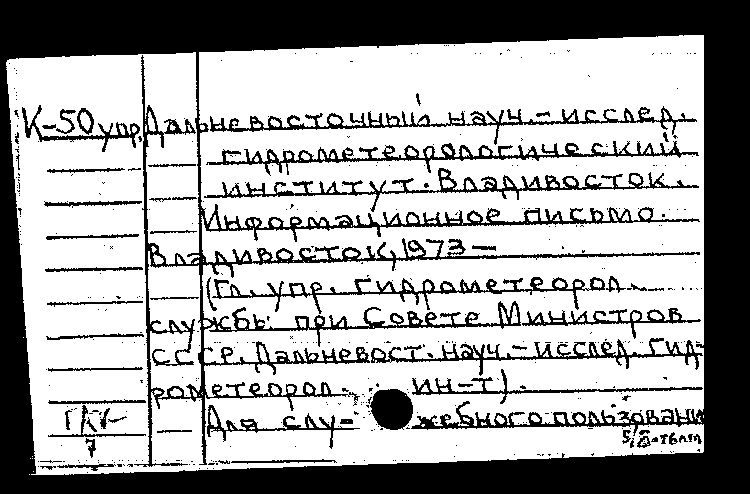 К-50 упр. Дальневосточный науч.-исслед.
гидрометеорологический
институт. Владивосток.
Информационное письмо.
Владивосток, 1973 —
(Гл. упр. гидрометеорол.
службы при Совете Министров
СССР. Дальневост. науч.-исслед. гид-
рометеорол. ин-т).
Для слу-жебного пользовани
7